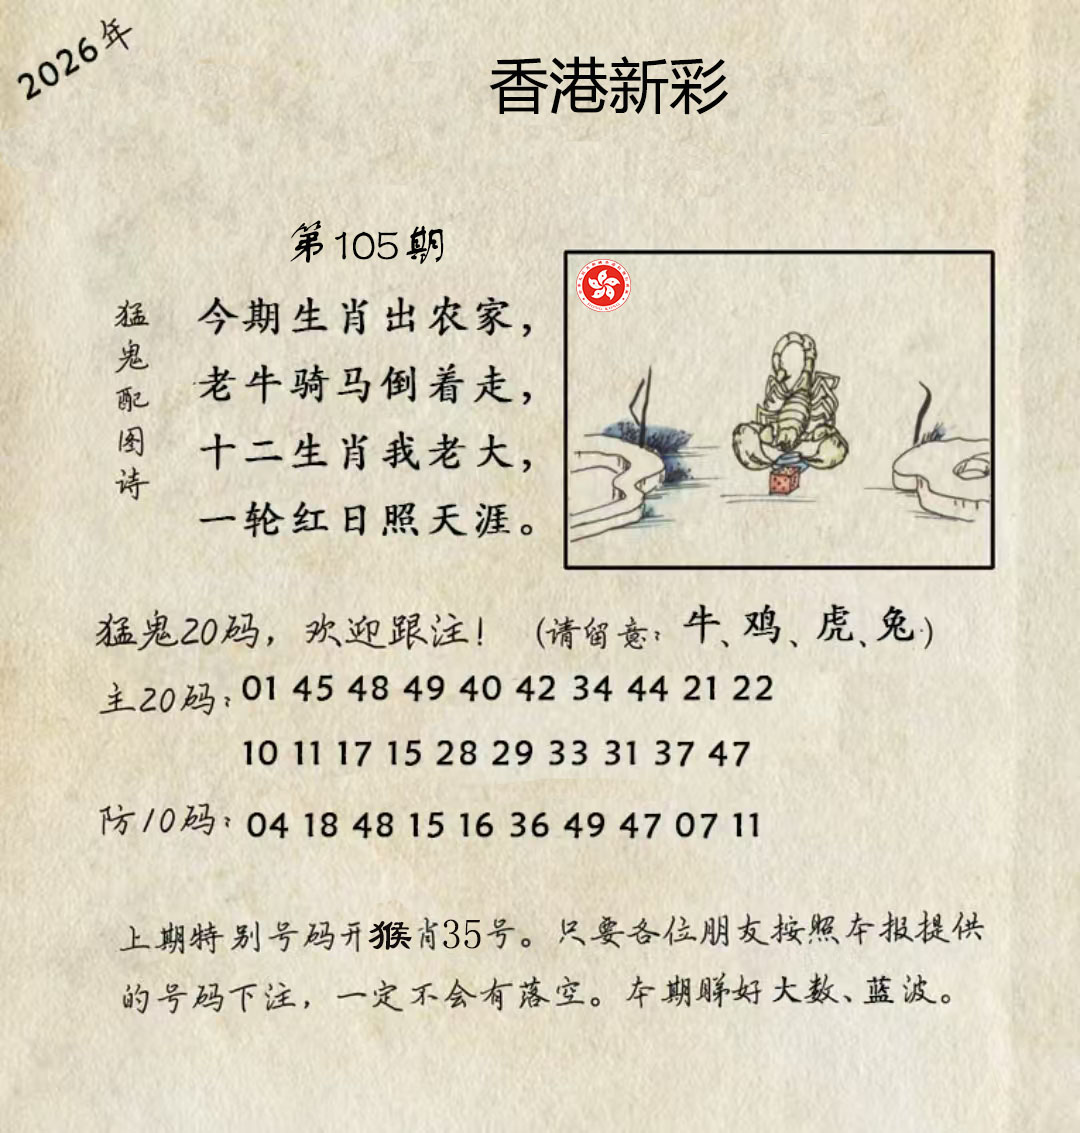 2026年
香港新彩
第105期
猛鬼配图诗
今期生肖出农家，
老牛骑马倒着走，
十二生肖我老大，
一轮红日照天涯。
猛鬼20码，欢迎跟注！（请留意：牛、鸡、虎、兔）
主20码：01 45 48 49 40 42 34 44 21 22
10 11 17 15 28 29 33 31 37 47
防10码：04 18 48 15 16 36 49 47 07 11
上期特别号码开猴肖35号。只要各位朋友按照本报提供
的号码下注，一定不会有落空。本期睇好大数、蓝波。